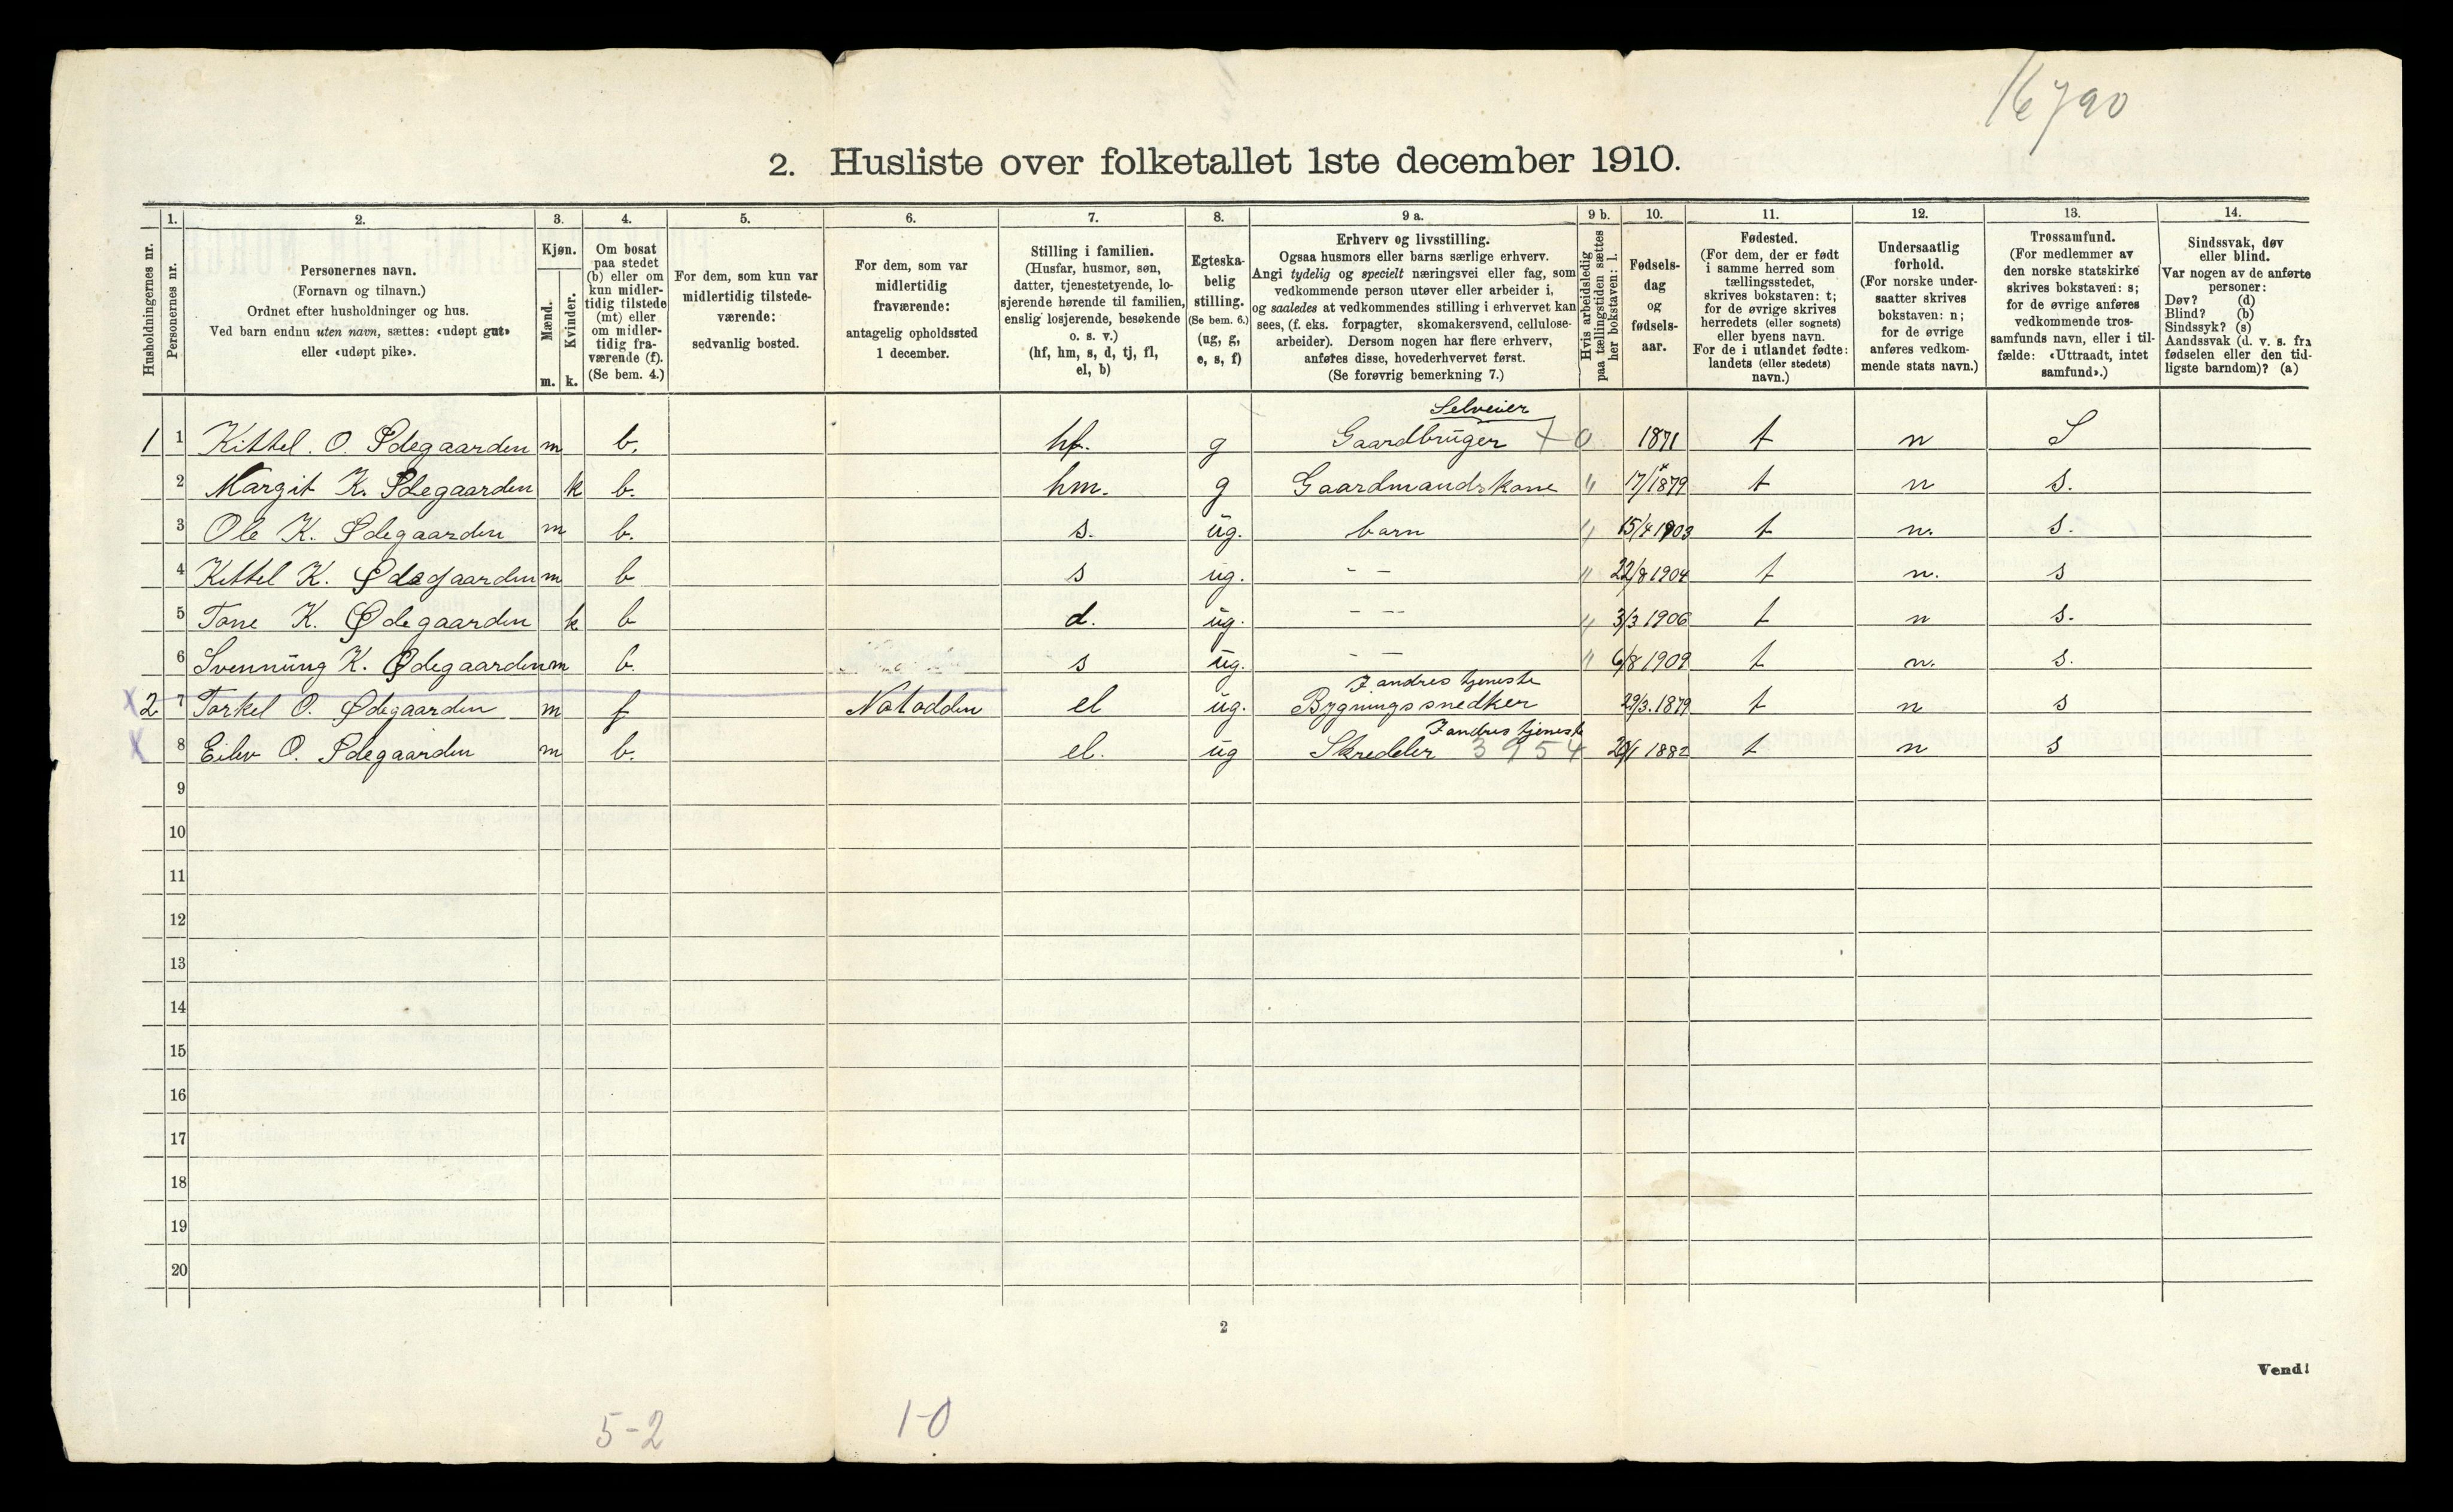 16790
2. Husliste over folketallet 1ste december 1910.
Husholdningernes nr.
1.
Personernes nr.
2.
Personernes navn.
(Fornavn og tilnavn.)
Ordnet efter husholdninger og hus.
Ved barn endnu uten navn, sættes: «udøpt gut»
eller «udøpt pike».
3.
Kjøn.
Mænd.
Kvinder.
m. k.
4.
Om bosat
paa stedet
(b) eller om
kun midler-
tidig tilstede
(mt) eller
om midler-
tidig fra-
værende (f).
(Se bem. 4.)
5.
For dem, som kun var
midlertidig tilstede-
værende:
sedvanlig bosted.
6.
For dem, som var
midlertidig
fraværende:
antagelig opholdssted
1 december.
7.
Stilling i familien.
(Husfar, husmor, søn,
datter, tjenestetyende, lo-
sjerende hørende til familien,
enslig losjerende, besøkende
o. s. v.)
(hf, hm, s, d, tj, fl,
el, b)
8.
Egteska-
belig
stilling.
(Se bem. 6.)
(ug, g,
e, s, f)
9 a.
Erhverv og livsstilling.
Ogsaa husmors eller barns særlige erhverv.
Angi tydelig og specielt næringsvei eller fag, som
vedkommende person utøver eller arbeider i,
og saaledes at vedkommendes stilling i erhvervet kan
sees, (f. eks. forpagter, skomakersvend, cellulose-
arbeider). Dersom nogen har flere erhverv,
anføres disse, hovederhvervet først.
(Se forøvrig bemerkning 7.)
9 b.
Hvis arbeidsledig
paa tællingstiden sættes
her bokstaven: l.
10.
Fødsels-
dag
og
fødsels-
aar.
11.
Fødested.
(For dem, der er født
i samme herred som
tællingsstedet,
skrives bokstaven: t;
for de øvrige skrives
herredets (eller sognets)
eller byens navn.
For de i utlandet fødte:
landets (eller stedets)
navn.)
12.
Undersaatlig
forhold.
(For norske under-
saatter skrives
bokstaven: n;
for de øvrige
anføres vedkom-
mende stats navn.)
13.
Trossamfund.
(For medlemmer av
den norske statskirke
skrives bokstaven: s;
for de øvrige anføres
vedkommende tros-
samfunds navn, eller i til-
fælde: «Uttraadt, intet
samfund».)
14.
Sindssvak, døv
eller blind.
Var nogen av de anførte
personer:
Døv? (d)
Blind? (b)
Sindssyk? (s)
Aandssvak (d. v. s. fra
fødselen eller den tid-
ligste barndom)? (a)
Selveier
1 1 Kittel. O. Ødegaarden m b. hf. g Gaardbruger + 0 1871 t n S
2 Margit K. Ødegaarden k b. hm. g Gaardmandskone " 17/ 1879 t n s.
3 Ole K. Ødegaarden m b. s. ug. barn " 15/4 1903 t n. s.
4 Kittel K. Ødegaarden m b s ug. - - " 22/8 1904 t n. s
5 Tone K. Ødegaarden k b d. ug. - - " 3/3 1906 t n s.
6 Svennung K. Ødegaarden m b. s ug. - - " 6/8 1909 t n. s.
I andres tjeneste
x 2 7 Torkel O. Ødegaarden m f Notodden el ug. Bygningssnedker 29/3. 1879 t n s
I andres tjeneste
x 8 Eilev O. Ødegaarden m b. el. ug Skredder 3954 20/1 1882 t n s
9
10
11
12
13
14
15
16
17
18
19
20
2
Vend!
5-2
1-0